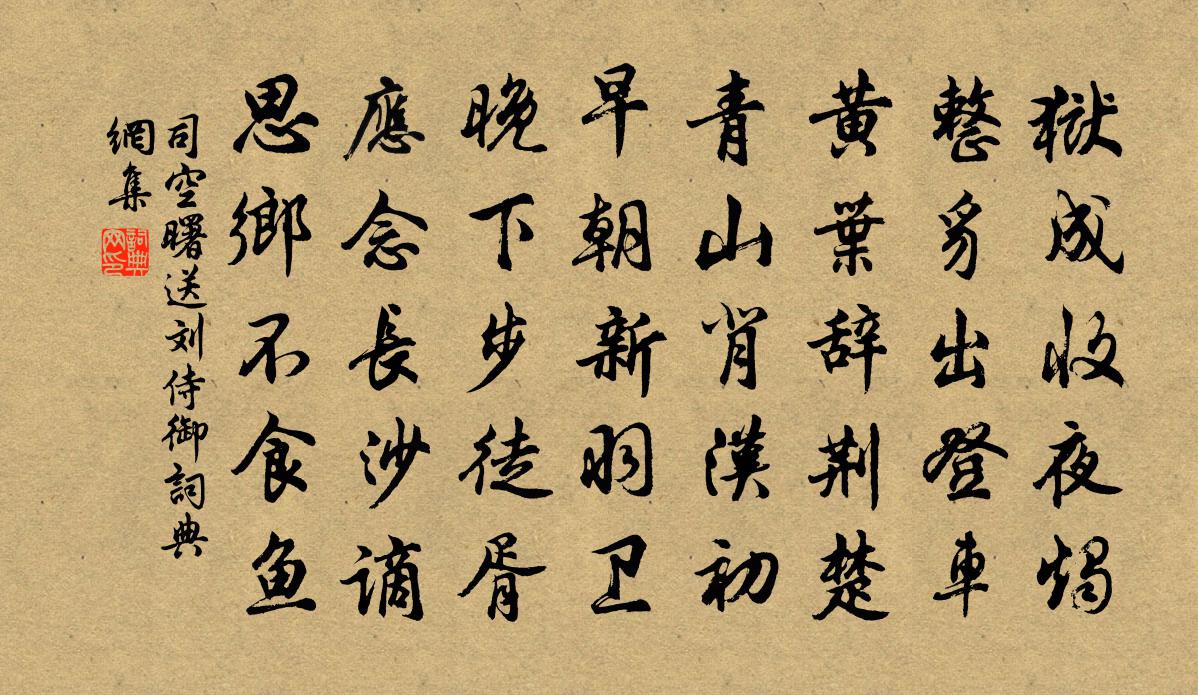 獄成收夜燭
整豸出登車
黃葉辞荆楚
青山背漢初
早朝新羽卫
晚下步徒胥
應念長沙謫
思鄉不食鱼
司空曙送刘侍御詞典
網集
詞典
网印